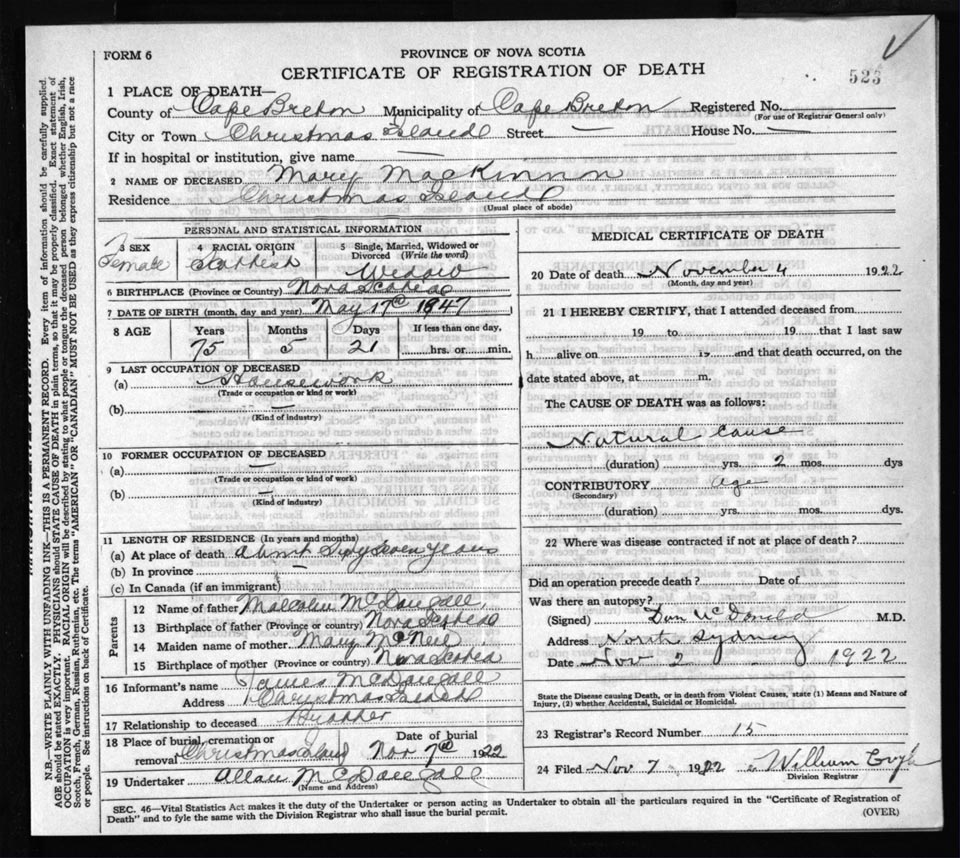 FORM 6
PROVINCE OF NOVA SCOTIA
CERTIFICATE OF REGISTRATION OF DEATH
523
1 PLACE OF DEATH—
County of Cape Breton Municipality of Cape Breton Registered No.
(For use of Registrar General only)
City or Town Christmas Island Street — House No. —
If in hospital or institution, give name —
2 NAME OF DECEASED Mary MacKinnon
Residence Christmas Island
(Usual place of abode)
PERSONAL AND STATISTICAL INFORMATION
3 SEX Female
4 RACIAL ORIGIN Scottish
5 Single, Married, Widowed or Divorced (Write the word) Widow
6 BIRTHPLACE (Province or Country) Nova Scotia
7 DATE OF BIRTH (month, day and year) May 17th 1847
8 AGE Years Months Days If less than one day,
75 5 21 hrs. or min.
9 LAST OCCUPATION OF DECEASED
(a) Housework
(Trade or occupation or kind or work)
(b)
(Kind of industry)
10 FORMER OCCUPATION OF DECEASED
(a) —
(Trade or occupation or kind of work)
(b) —
(Kind of industry)
11 LENGTH OF RESIDENCE (In years and months)
(a) At place of death About Sixty Seven Years
(b) In province —
(c) In Canada (if an immigrant)
Parents
12 Name of father Malcolm McDougall
13 Birthplace of father (Province or country) Nova Scotia
14 Maiden name of mother Mary McNeil
15 Birthplace of mother (Province or country) Nova Scotia
16 Informant's name James McDougall
Address Christmas Island
17 Relationship to deceased Brother
18 Place of burial, cremation or removal Christmas Island Date of burial Nov 7th 1922
19 Undertaker Allan McDougall
(Name and Address)
MEDICAL CERTIFICATE OF DEATH
20 Date of death November 4 1922
(Month, day and year)
21 I HEREBY CERTIFY, that I attended deceased from
19 to 19 that I last saw
h alive on 19 and that death occurred, on the
date stated above, at m.
The CAUSE OF DEATH was as follows:
Natural Cause
(duration) yrs. 2 mos. dys
CONTRIBUTORY Age
(Secondary)
(duration) yrs. mos. dys.
22 Where was disease contracted if not at place of death?
Did an operation precede death? Date of
Was there an autopsy?
(Signed) Dan McDonald M.D.
Address North Sydney
Date Nov 2 1922
State the Disease causing Death, or in death from Violent Causes, state (1) Means and Nature of
Injury, (2) whether Accidental, Suicidal or Homicidal.
23 Registrar's Record Number 15
24 Filed Nov 7 1922 William
Division Registrar
SEC. 46—Vital Statistics Act makes it the duty of the Undertaker or person acting as Undertaker to obtain all the particulars required in the "Certificate of Registration of
Death" and to fyle the same with the Division Registrar who shall issue the burial permit.
(OVER)
N.B.—WRITE PLAINLY WITH UNFADING INK—THIS IS A PERMANENT RECORD. Every item of information should be carefully supplied.
AGE should be stated EXACTLY. PHYSICIANS should STATE CAUSE OF DEATH in plain terms, so that it may be properly classified. Exact statement of
OCCUPATION is very important. RACIAL ORIGIN will be described by stating to what people or tongue the deceased person belonged whether English, Irish,
Scotch, French, German, Russian, Ruthenian, etc. The terms "AMERICAN" or "CANADIAN" MUST NOT BE USED as they express citizenship but not a race
or people. See instructions on back of Certificate.